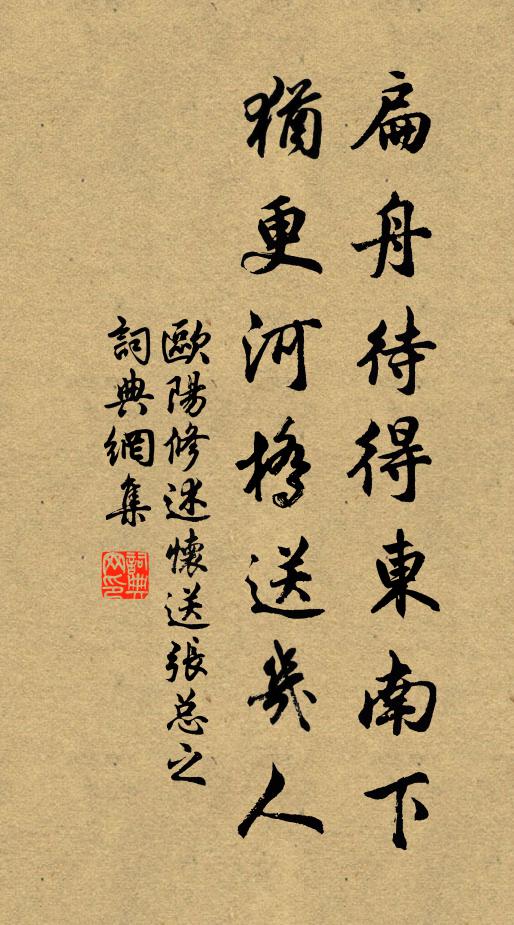 扁舟待得東南下
猶更河橋送幾人
歐陽修述懷送張总之
詞典網集
詞典網印